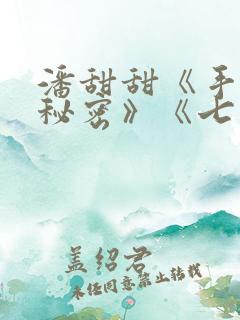 潘甜甜《手
秘密》《七
盖绍君
未经同意禁止转载